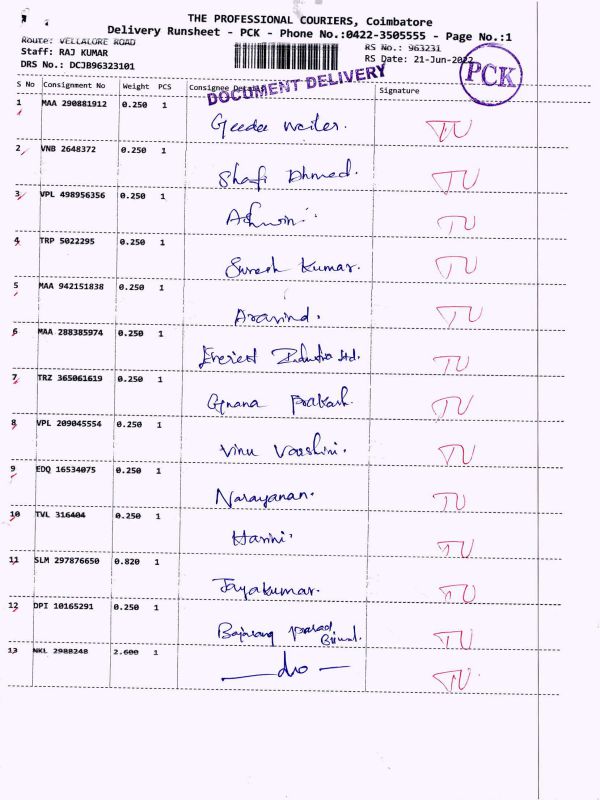 THE PROFESSIONAL COURIERS, Coimbatore
Delivery Runsheet - PCK - Phone No.:0422-3505555 - Page No.:1
Route: VELLALORE ROAD
RS No.: 963231
Staff: RAJ KUMAR
RS Date: 21-Jun-2022
DRS No.: DCJB96323101
PCK
DOCUMENT DELIVERY
S No Consignment No Weight PCS Consignee Details Signature
1 MAA 290881912 0.250 1
Geedee weiler. TU
2 VNB 2648372 0.250 1
Shafi Ahmed. TU
3 VPL 498956356 0.250 1
Ashwin. TU
4 TRP 5022295 0.250 1
Suresh Kumar. TU
5 MAA 942151838 0.250 1
Aravind. TU
6 MAA 288385974 0.250 1
Everest ltd. TU
7 TRZ 365061619 0.250 1
Gnana Prakash. TU
8 VPL 209045554 0.250 1
Vinu Varshini. TU
9 EDQ 16534075 0.250 1
Narayanan. TU
10 TVL 316404 0.250 1
Harini. TU
11 SLM 297876650 0.820 1
Jayakumar. TU
12 DPI 10165291 0.250 1
Bajarang prasad TU
13 NKL 2988248 2.600 1
— do — TU